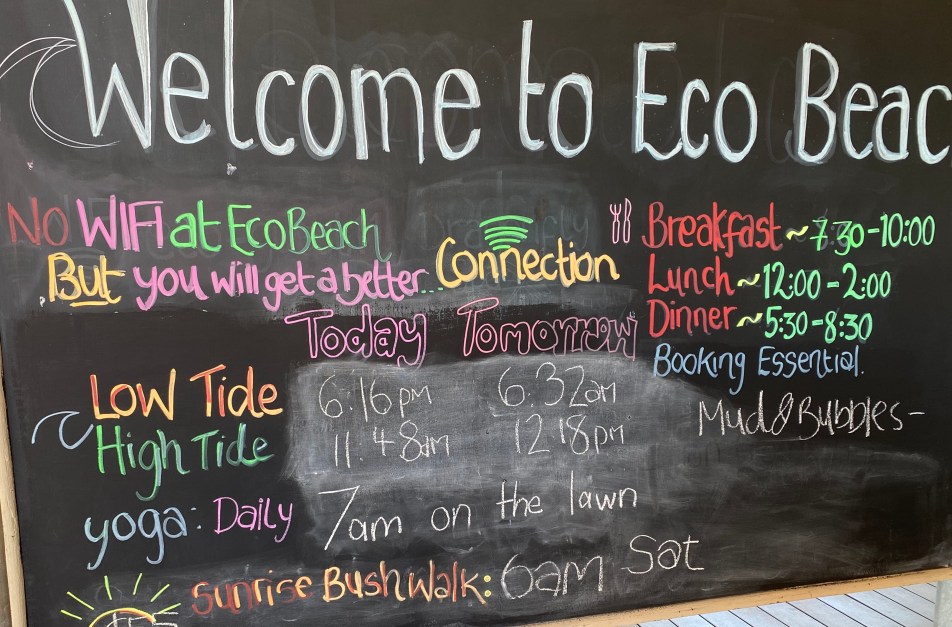 Welcome to Eco Beac
No WIFI at EcoBeach
But you will get a better... Connection
Breakfast ~ 7.30-10:00
Lunch ~ 12:00-2:00
Dinner ~ 5:30-8:30
Booking Essential.
Mud & Bubbles-
Today Tomorrow
Low Tide 6.16pm 6.32am
High Tide 11.48am 12.18pm
yoga: Daily 7am on the lawn
Sunrise BushWalk: 6am Sat